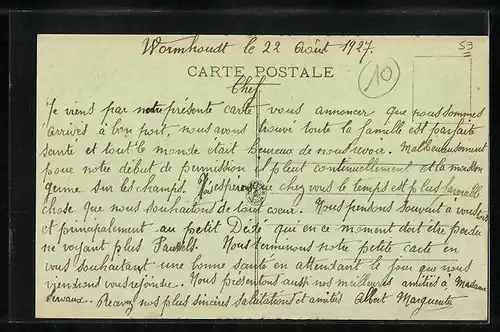 Wormhoudt le 22 Août 1927.
59
CARTE POSTALE
10
Chef
Je viens par notre présente carte vous annoncer que nous sommes
arrivés à bon port, nous avons trouvé toute la famille est parfaite
santé et tout le monde était heureux de nous revoir. Malheureusement
pour notre début de permission il pleut continuellement et la moisson
germe sur les champs. J'espère que chez vous le temps est plus favorable
chose que nous souhaitons de tout coeur. Nous pensons souvent à vous
et principalement au petit Dédé qui en ce moment doit être perdu
ne voyant plus Nous terminons notre petite carte en
vous souhaitant une bonne santé en attendant le jour que nous
viendrons vous rejoindre. Nous présentons aussi nos meilleures amitiés à Madame
Servaux. Recevez nos plus sincères salutations et amitiés Albert Marguerite